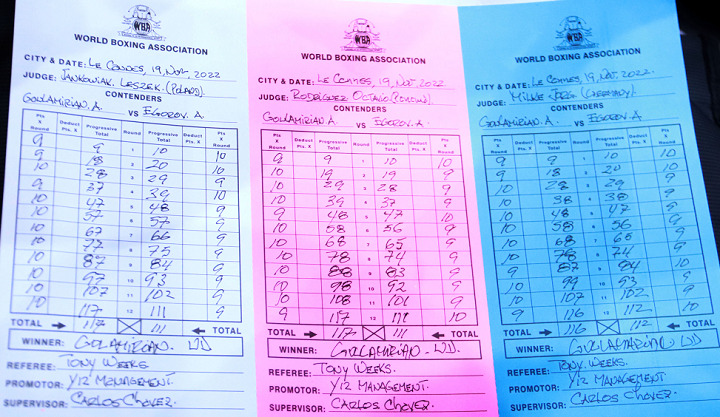 WBA
WORLD BOXING ASSOCIATION
CITY & DATE: LE CANNES, 19, NOV, 2022
JUDGE: JANKOWIAK. LESZEK. (POLAND).
CONTENDERS
GOULAMIRIAN. A. VS EGOROV. A.
Pts X Round Deduct Pts. X Progressive Total Progressive Total Deduct Pts. X Pts X Round
9 9 1 10 10
9 18 2 20 10
10 28 3 29 9
9 37 4 39 10
10 47 5 48 9
10 57 6 57 9
10 67 7 66 9
10 77 8 75 9
10 87 9 84 9
10 97 10 93 9
10 107 11 102 9
10 117 12 111 9
TOTAL 117 111 TOTAL
WINNER: GOLAMIRIAN. UD
REFEREE: TONY WEEKS
PROMOTOR: Y12 MANAGEMENT.
SUPERVISOR: CARLOS CHAVEZ.
WBA
WORLD BOXING ASSOCIATION
CITY & DATE: LE CANNES, 19, NOV. 2022
JUDGE: RODRIGUEZ OCTAVIO
CONTENDERS
GOULAMIRIAN A. VS EGOROV. A
Pts X Round Deduct Pts. X Progressive Total Progressive Total Deduct Pts. X Pts X Round
9 9 1 10 10
10 19 2 19 9
10 29 3 28 9
10 39 4 37 9
9 48 5 47 10
10 58 6 56 9
10 68 7 65 9
10 78 8 74 9
10 88 9 83 9
10 98 10 92 9
10 108 11 101 9
9 117 12 111 10
TOTAL 117 111 TOTAL
WINNER: GULAMIRIAN - UD.
REFEREE: TONY WEEKS.
PROMOTOR: Y12 MANAGEMENT.
SUPERVISOR: CARLOS CHAVEZ.
WBA
WORLD BOXING ASSOCIATION
CITY & DATE: LE CANNES, 19, NOV, 2022.
JUDGE: MILKE JÜRG (GERMANY)
CONTENDERS
GOULAMIRIAN A. VS EGOROV. A.
Pts X Round Deduct Pts. X Progressive Total Progressive Total Deduct Pts. X Pts X Round
9 9 1 10 10
9 18 2 20 10
10 28 3 29 9
10 38 4 38 9
10 48 5 47 9
10 58 6 56 9
10 68 7 65 9
10 78 8 74 9
9 87 9 84 10
10 97 10 93 9
10 107 11 102 9
9 116 12 112 10
TOTAL 116 112 TOTAL
WINNER: GULAMIRIAN - UD
REFEREE: TONY. WEEKS.
PROMOTOR: Y12 MANAGEMENT.
SUPERVISOR: CARLOS CHAVEZ.